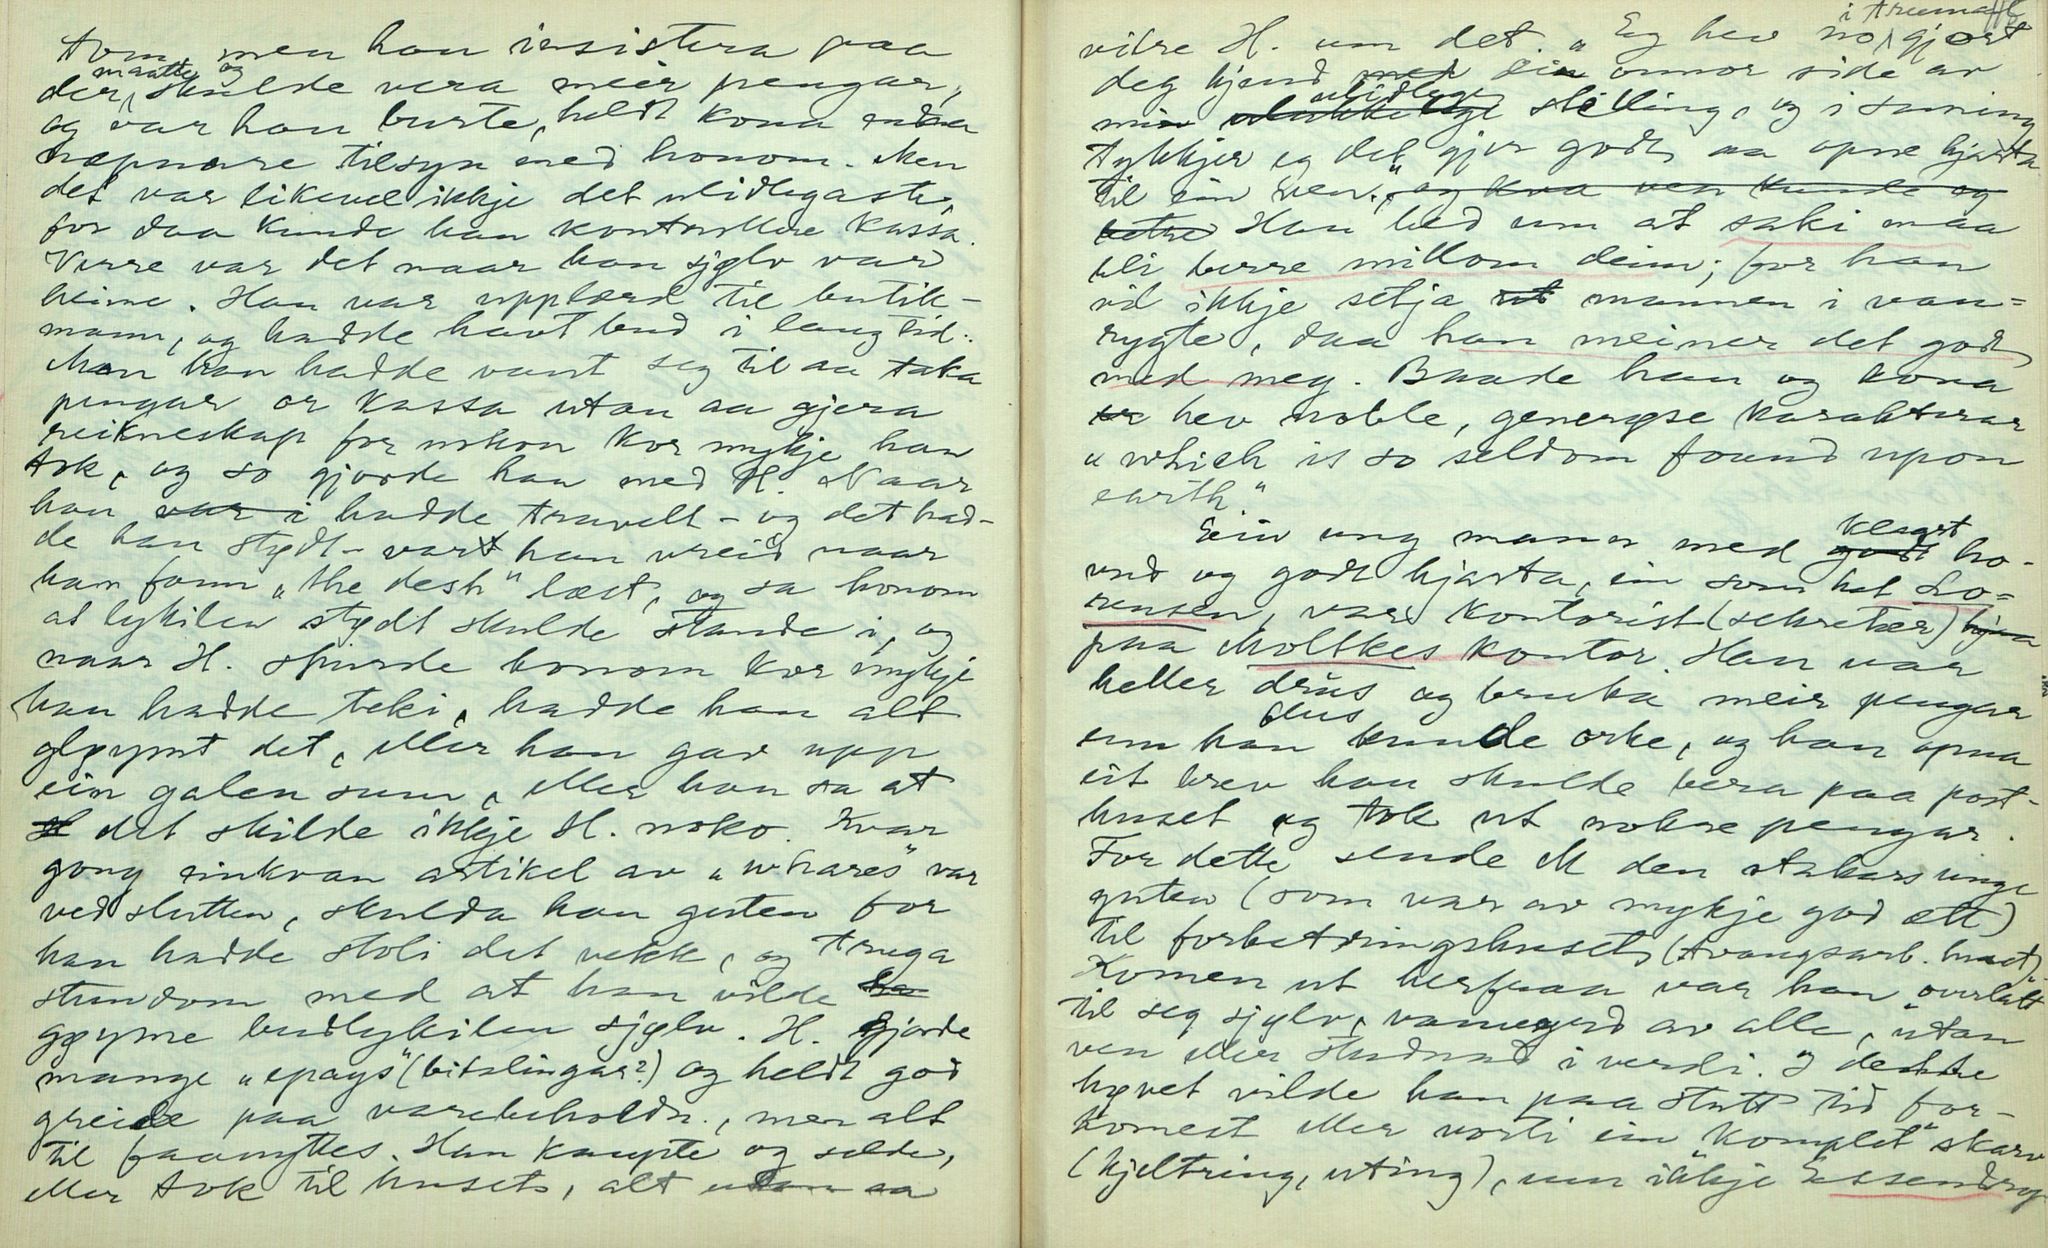 tom, men han insistera paa
der maatte og skulde vera meir pengar,
og var han burte, heldt kona endaa
næpnare tilsyn med honom. Men
det var likevel ikkje det ulidlegaste,
for daa kunde han kontrollere kassa.
Verre var det naar han sjølv var
heime. Han var upplærd til butik-
mann, og hadde havt bud i lang tid.
Men han hadde vant seg til aa taka
pengar or kassa utan aa gjera
reikneskap for nokon kor mykje han
tok, og so gjorde han med H. Naar
han var i hadde travelt – og det had-
de han stødt – vart han vreid naar
han fann "the desk" læst, og sa honom
at lykilen stødt skulde stande i, og
naar H. spurde honom kor mykje
han hadde teki, hadde han alt
gløymt det, eller han gav upp
ein galen sum, eller han sa at
det skilde ikkje H. noko. Kvar
gong einkvan artikel av "whares" var
ved slutten, skulda han guten for
han hadde stoli det vekk, og truga
stundom med at han vilde
gøyme budlykilen sjølv. H. gjorde
mange "epays" (bitslingar?) og heldt god
greide paa varebeholdn., men alt
til faanyttes. Han kaupte og selde,
eller tok til huset, alt utan aa
vitre H. um det. "Eg hev no i truemaal gjort
deg kjend med ein onnor side av
min ulukkelege ulidlege stilling, og i sanning
tykkjer eg det gjer godt aa opne hjarta
til ein ven", og kva ven kunde eg
betre Han bed um at saki maa
bli berre millom deim; for han
vil ikkje setja ut mannen i van-
rygte, daa han meiner det godt
med meg. Baade han og kona
er hev noble, generøse karakterar
"which is so seldom found upon
earth"
Ein ung mann med godt klaart ho-
vud og godt hjarta, ein som het Lo-
rensen, var kontorist (sekretær) hjaa
paa Moltkes kontor. Han var
heller drus og bruka meir pengar
enn han kunde orke, og han opna
eit brev han skulde bera paa post-
huset og tok ut nokre pengar.
For dette sende M den stakars unge
guten (som var av mykje god ætt)
til forbetringshuset (tvangsarb. huset).
Komen ut herfraa var han "overlatt
til seg sjølv, vanvyrd av alle, utan
ven eller studnad i verdi. I dette
høvet vilde han paa stutt tid for-
komest eller vorti ein "komplet" skarv
(kjeltring, uting), um ikkje Essendrop